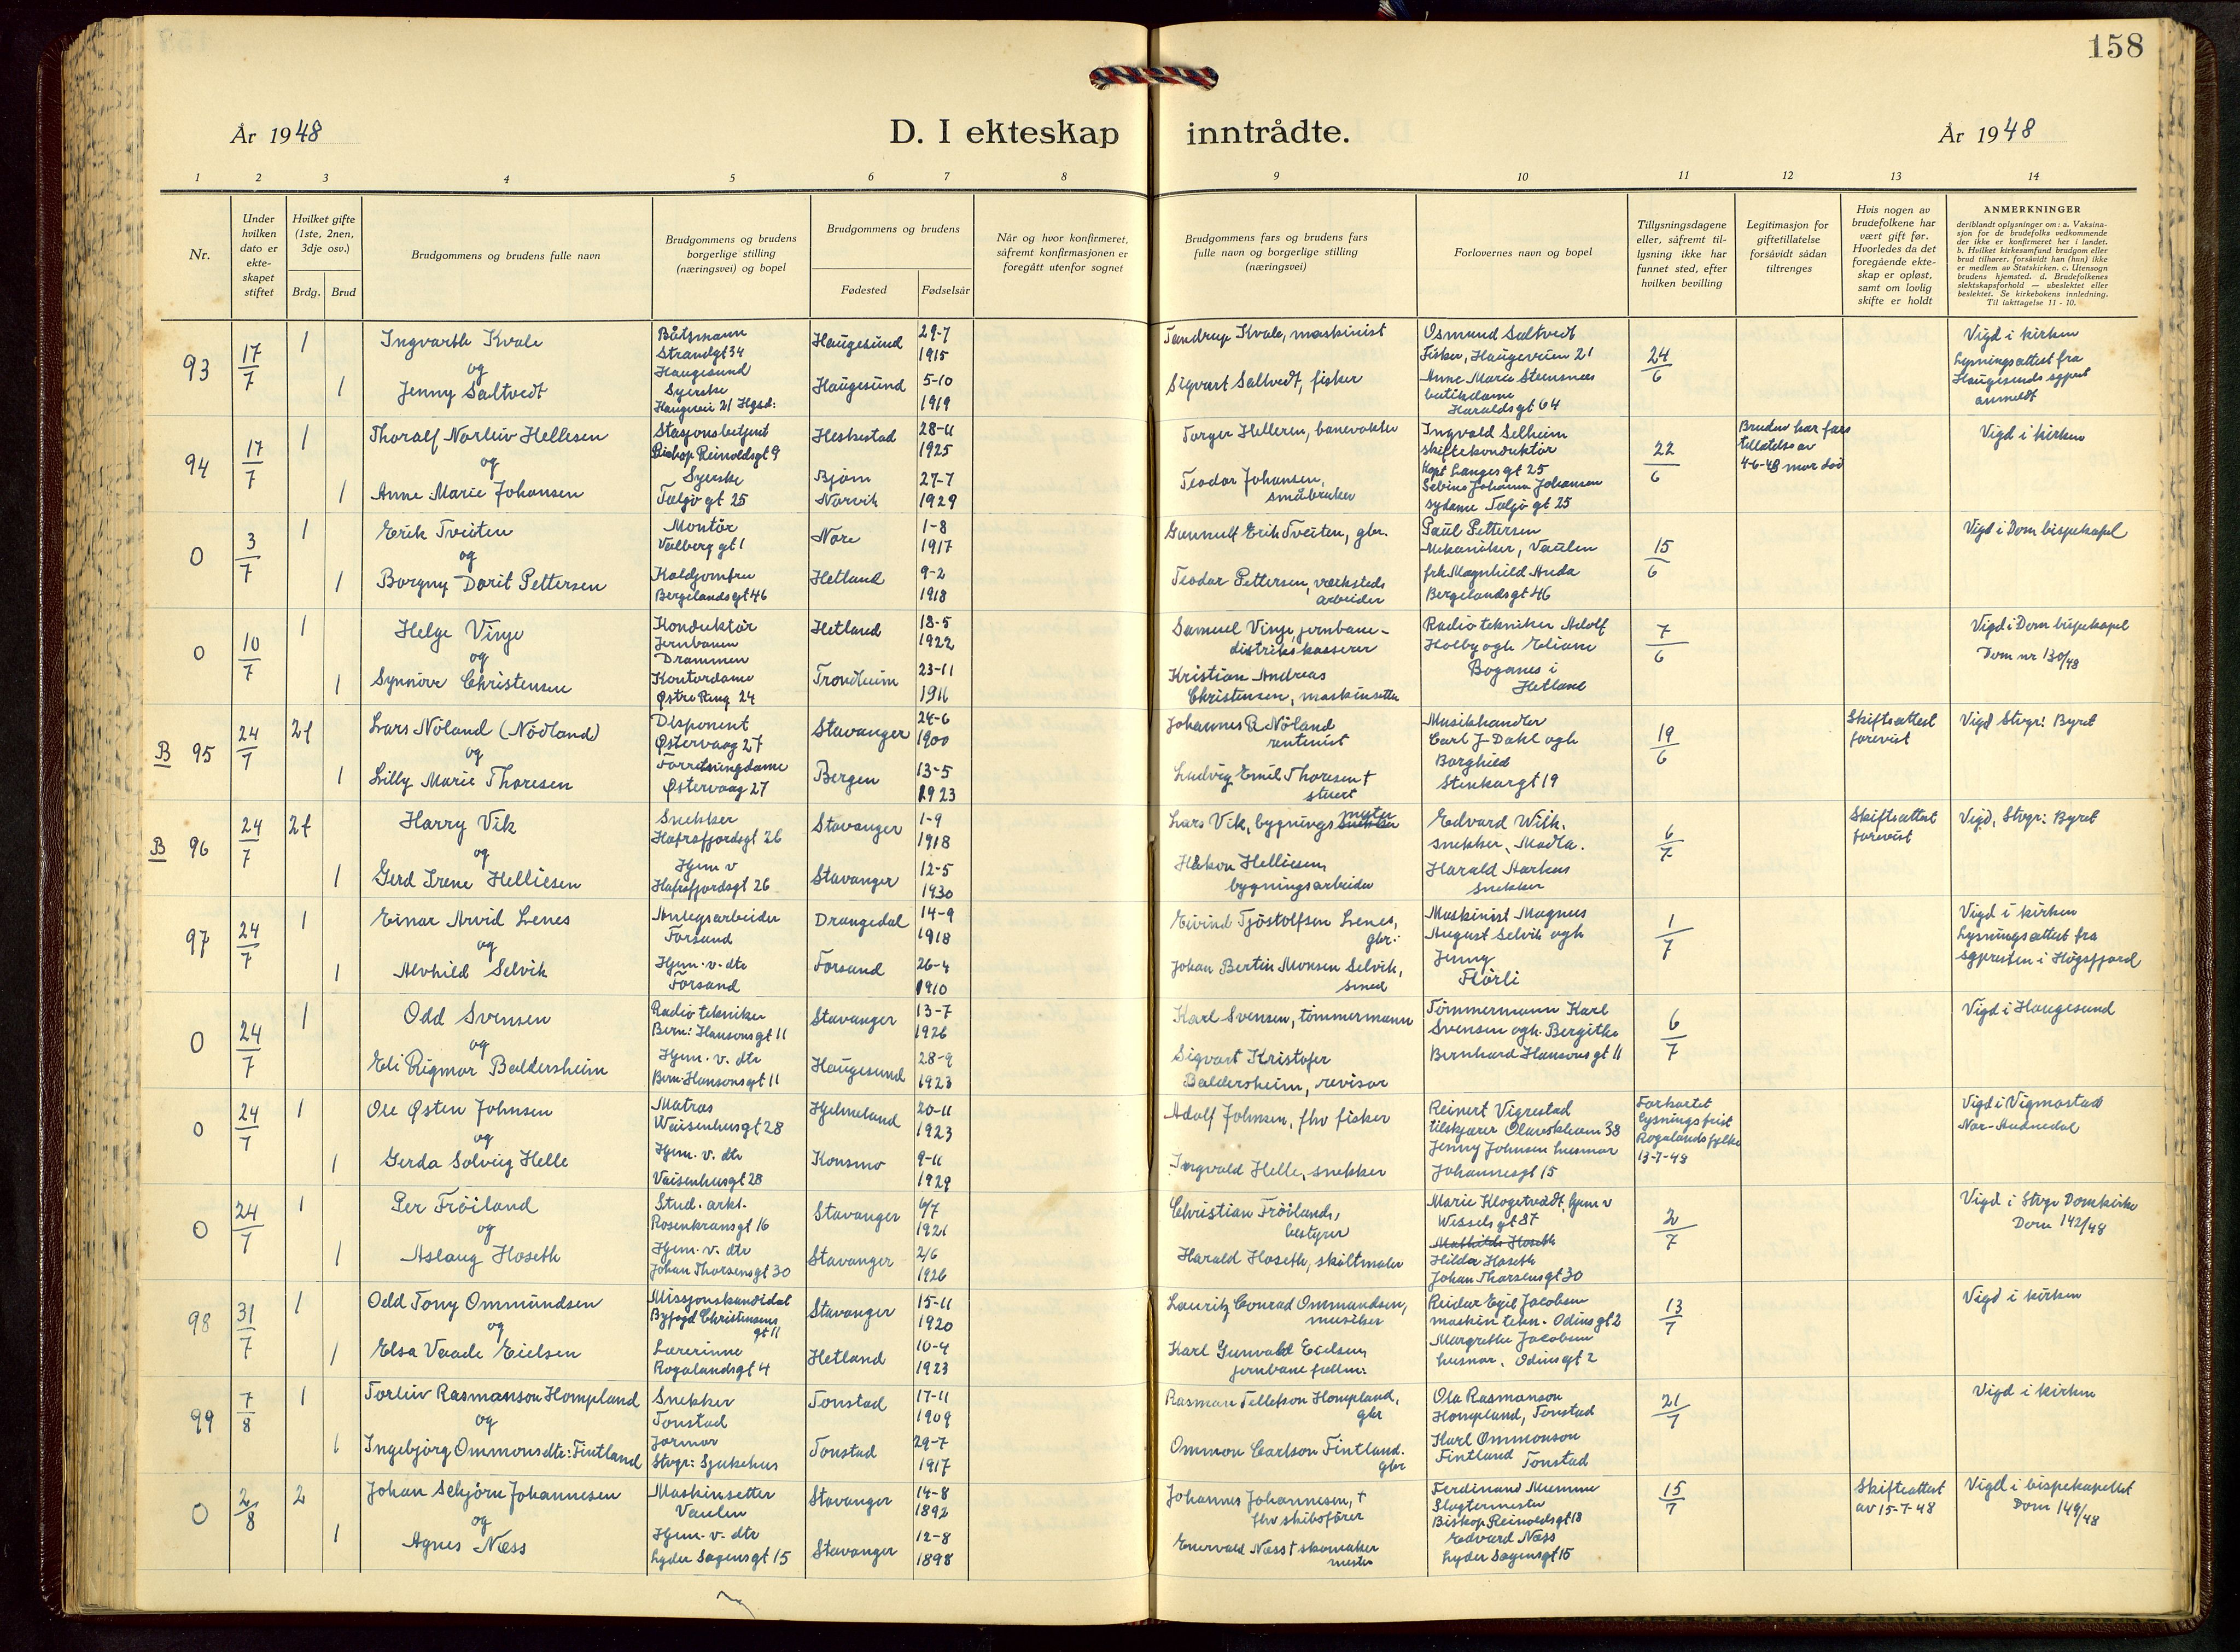 158
År 1948
D. I ekteskap inntrådte.
År 1948
1 2 3 4 5 6 7 8 9 10 11 12 13 14
Nr.
Under
hvilken
dato er
ekte-
skapet
stiftet
Hvilket gifte
(1ste, 2nen,
3dje osv.)
Brdg. Brud
Brudgommens og brudens fulle navn
Brudgommens og brudens
borgerlige stilling
(næringsvei) og bopel
Brudgommens og brudens
Fødested
Fødselsår
Når og hvor konfirmeret,
såfremt konfirmasjonen er
foregått utenfor sognet
Brudgommens fars og brudens fars
fulle navn og borgerlige stilling
(næringsvei)
Forlovernes navn og bopel
Tillysningsdagene
eller, såfremt til-
lysning ikke har
funnet sted, efter
hvilken bevilling
Legitimasjon for
giftetillatelse
forsåvidt sådan
tiltrenges
Hvis nogen av
brudefolkene har
vært gift før.
Hvorledes da det
foregående ekte-
skap er opløst,
samt om lovlig
skifte er holdt
ANMERKNINGER
deriblandt oplysninger om: a. Vaksina-
sjon for de brudefolks vedkommende
der ikke er konfirmeret her i landet.
b. Hvilket kirkesamfund brudgom eller
brud tilhører, forsåvidt han (hun) ikke
er medlem av Statskirken. c. Utensogn
brudens hjemsted. d. Brudefolkenes
slektskapsforhold — ubeslektet eller
beslektet. Se kirkebokens innledning.
Til iakttagelse 11 - 10.
93
17/7
1
Ingvarth Kvale
og
1
Jenny Saltvedt
Båtsmann
Strandgt 34
Haugesund
Syerske
Haugevei 21 Hgsd:
Haugesund
29-7
1915
Haugesund
5-10
1919
Tandrup Kvale, maskinist
Sigvart Saltvedt, fisker
Osmund Saltvedt
Fisker, Haugeveien 21
Anne Marie Steensnes
butikdame
Haraldsgt 64
24/6
Vigd i kirken
Lysningsattest fra
Haugesunds sgprest
anmeldt
94
17/7
1
Thoralf Norleiv Hellesen
og
1
Anne Marie Johansen
Stasjonsbetjent
Biskop Reinoldsgt 9
Syerske
Taljo gt 25
Heskestad
28-11
1925
Bjørn
Narvik
27-7
1929
Torger Helleren, banevokter
Teodor Johansen,
småbruker
Ingvald Selheim
skiftekonduktør
Kapt Langes gt 25
Sebine Johanna Johansen
sydame Taljo gt 25
22/6
Bruden har fars
tillatelse av
4-6-48 mor død
Vigd i kirken
0
3/7
1
Erik Tveiten
og
1
Borgny Dorit Pettersen
Montør
Valberg gt 1
Koldjomfru
Bergelandsgt 46
Nore
1-8
1917
Hetland
9-2
1918
Gunnulf Erik Tveiten, gbr.
Teodor Pettersen, værksteds
arbeider
Paul Pettersen
Mekaniker, Vaulen
frk Magnhild Auda
Bergelandsgt 46
15/6
Vigd i Dom bispekapel
0
10/7
1
Helge Vinje
og
1
Synnöve Christensen
Konduktør
Jernbanen
Drammen
Kontordame
Østre Ring 24
Hetland
18-5
1922
Trondheim
23-11
1911
Samuel Vinje, jernbane-
distriktskasserer
Kristian Andreas
Christensen, maskinsetter
Radiotekniker Adolf
Holby ogh Eliane
Boganes i
Hetland
7/6
Vigd i Dom bispekapel
Dom nr 130/48
B 95
24/7
2f
Lars Nöland (Nödland)
og
1
Lilly Marie Thoresen
Disponent
Østervaag 27
Forretningdame
Østervaag 27
Stavanger
24-6
1900
Bergen
13-5
1923
Johannes R Nöland
rentenist
Ludvig Emil Thoresen †
stuert
Musikhandler
Carl J Dahl ogh
Borghild
Stenkargt 19
19/6
Skifteattest
forevist
Vigd Stvgr: Byret
B 96
24/7
2f
Harry Vik
og
1
Gerd Irene Helliesen
Snekker
Hafrsfjordsgt 26
Hjem v
Hafrsfjordsgt 26
Stavanger
1-9
1918
Stavanger
12-5
1930
Lars Vik, bygningsmester
Håkon Helliesen
bygningsarbeider
Edvard Wiik.
snekker, Madla.
Harald Aarhus
snekker
6/7
Skifteattest
forevist
Vigd, Stvgr: Byret
97
24/7
1
Einar Arvid Lenes
og
1
Alvhild Selvik
Anlegsarbeider
Forsand
Hjem-v-dtr
Forsand
Drangedal
14-9
1918
Forsand
26-4
1910
Eivind Tjöstolfsen Lenes,
gbr:
Johan Bertin Monsen Selvik,
smed
Maskinist Magnus
August Selvik ogh
Jenny
Flörli
1/7
Vigd i kirken
Lysningsattest fra
sgpresten i Høgsfjord
0
24/7
1
Odd Svensen
og
Eli Rigmor Baldersheim
Radiotekniker
Bern: Hansonsgt 11
Hjem. v. dtr
Bern-Hansonsgt 11
Stavanger
13-7
1926
Haugesund
28-9
1923
Karl Svensen, tømmermann
Sigvart Kristofer
Baldersheim, revisor
Tømmermann Karl
Svensen ogh. Bergithe
Bernhard Hansons gt 11
6/7
Vigd i Haugesund
0
24/7
1
Ole Østen Johnsen
og
1
Gerda Solveig Helle
Matros
Waisenhusgt 28
Hjem. v. dtr
Vaisenhusgt 28
Hjelmeland
20-11
1923
Konsmo
9-11
1929
Adolf Johnsen, fhv fisker
Ingvald Helle, snekker
Reinert Vigrestad
tilskjærer Olavskleiv 38
Jenny Johnsen husmor
Johannesgt 15
Forkortet
lysningsfrist
Rogalands fylke
13-7-48
Vigd i Vigmostad
Nor-Audnedal
0
24/7
1
Per Fröiland
og
1
Aslaug Hoseth
Stud. arkt.
Rosenkransgt 16
Hjem. v. dtr
Johan Thorsensgt 30
Stavanger
6/7
1921
Stavanger
2/6
1926
Christian Fröiland,
bestyrer
Harald Hoseth, skiltmaler
Marie Klogetvedt, hjem v
Wessels gt 87
Mathilde Hoseth
Hilda Hoseth
Johan Thorsensgt 30
2/7
Vigd i Stvgr Domkirke
Dom 142/48
98
31/7
1
Odd Tony Ommundsen
og
1
Elsa Vaade Eielsen
Missjonskandidat
Byfogd Christensens
gt 11
Lærerinne
Rogalandsgt 4
Stavanger
15-11
1920
Hetland
10-4
1923
Lauritz Conrad Ommundsen,
musiker
Karl Gunvald Eielsen
jernbane fullm.
Reidar Egil Jacobsen
maskin tekn. Odins gt 2
Margrethe Jacobsen
husmor. Odinsgt 2
13/7
Vigd i kirken
99
7/8
1
Torleiv Rasmanson Hompland
og
1
Ingebjörg Ommonsdtr: Fintland
Snekker
Tonstad
Jormor
Stvgr: Sjukehus
Tonstad
17-11
1909
Tonstad
29-7
1917
Rasman Tellefson Hompland,
gbr
Ommon Carlson Fintland.
gbr
Ola Rasmonson
Hompland, Tonstad
Karl Ommonson
Fintland Tonstad
21/7
Vigd i kirken
0
2/8
2
Johan Sebjörn Johannesen
og
1
Agnes Næss
Maskinsetter
Vaulen
Hjem. v. dtr
Lyder Sagensgt 15
Stavanger
14-8
1892
Stavanger
12-8
1898
Johannes Johannesen, †
fhv skibsfører
Enervald Næss † skomaker
mester
Ferdinand Mumme
Slagtermester
Biskop Reinoldsgt 18
Edvard Næss
Lyder Sagensgt 15
15/7
Skifteattest
av 15-7-48
Vigd i bispekapellet
Dom 149/48